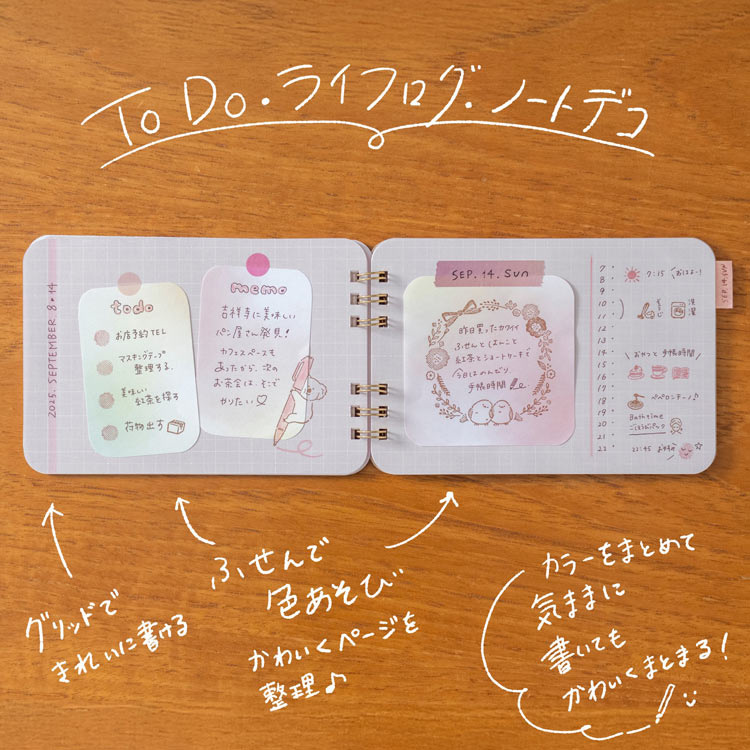 ToDo・ライフログ・ノートデコ
2025. SEPTEMBER. 8・14
todo
お店予約TEL
マスキングテープ
整理する
美味しい
紅茶を探す
荷物出す
memo
吉祥寺に美味しい
パン屋さん発見!
カフェスペースも
あったから、次の
お茶会は、そこで
やりたい♡
SEP. 14. Sun
昨日買ったカワイイ
ふせんとはんこと
紅茶とショートケーキで
今日はのんびり
手帳時間
SEP. 14. Sun
7
8
9
10
11
12
13
14
15
16
17
18
19
20
21
22
7:15 おはよー!
洗濯
おやつと手帳時間
ペペロンチーノ♪
Bath time
ごほうびパック
22:45 おやすみ
グリッドで
きれいに書ける
ふせんで
色あそび
かわいくページを
整理♪
カラーをまとめて
気ままに
書いても
かわいくまとまる!